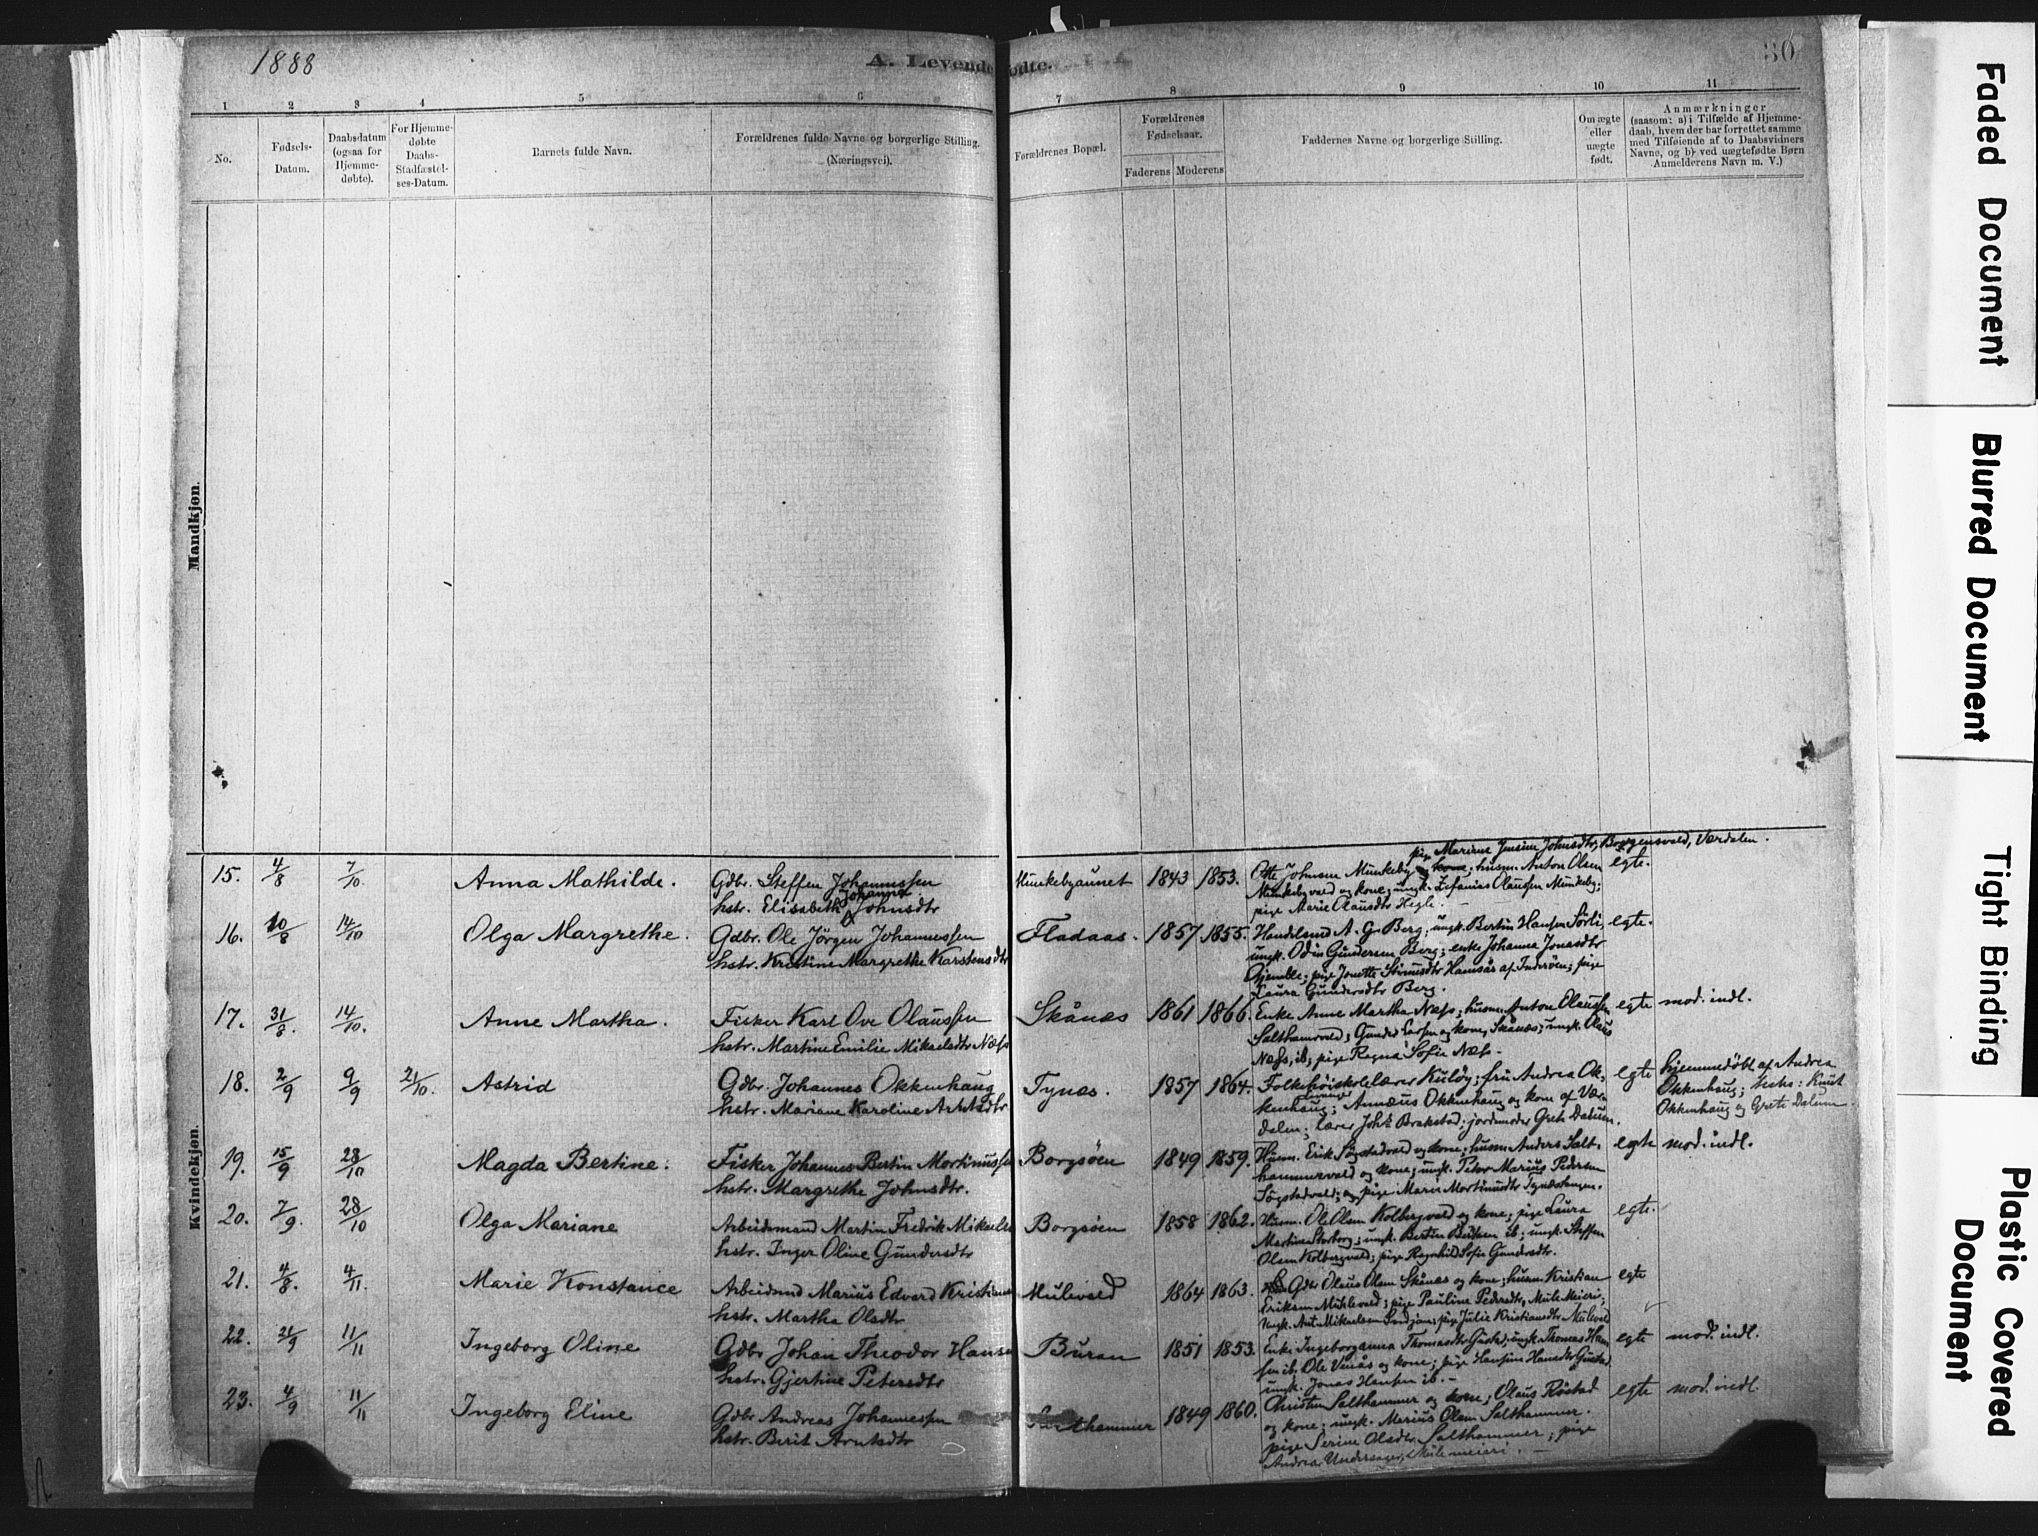 1888
A. Levendefødte.
30
1 2 3 4 5 6 7 8 9 10 11
No.
Fødsels-
Datum.
Daabsdatum
(ogsaa for
Hjemme-
døbte).
For Hjemme-
døbte
Daabs-
Stadfæstel-
ses-Datum.
Barnets fulde Navn.
Forældrenes fulde Navne og borgerlige Stilling.
(Næringsvei).
Forældrenes Bopæl.
Forældrenes
Fødselsaar.
Faderens Moderens
Faddernes Navne og borgerlige Stilling.
Om ægte
eller
uægte
født.
Anmærkninger
(saasom: a) i Tilfælde af Hjemme-
daab, hvem der har forrettet samme
med Tilføiende af to Daabsvidners
Navne, og b) ved uægtefødte Børn
Anmelderens Navn m. V.)
Mandkjøn.
Kvindekjøn.
15. 4/8 7/10 Anna Mathilde.
Gdbr. Steffen Johannessen
Johanna
hstr. Elisabeth Johnsdtr
Munkebyaunet 1843 1853.
pige Marene Jensine Johnsdtr, Borgensvald, Værdalen.
Otte Johnsen Munkeby kone; husm. Anton Olsen egte.
Munkebyvald og kone; ungk. Zefanias Olaussen Munkeby;
pige Marie Olausdtr Hegle.
16. 10/8 14/10 Olga Margrethe.
Gdbr. Ole Jörgen Johannessen
hstr. Kristine Margrethe Karstensdtr
Fladaas. 1857 1855.
Handelsmd A. G. Berg; ungk. Bertin Hansen Sörli; egte.
ungk. Odin Gundersen Berg; enke Johanna Jonasdtr
Gjemble; pige Jonette Hamsås af Inderöen; pige
Laura Gundersdtr Berg.
17. 31/8. 14/10. Anne Martha.
Fisker Karl Ove Olaussen
hstr. Martine Emilie Mikaelsdtr Næss
Skånæs 1861 1866.
Enke Anne Martha Næss; husm. Anton Olaussen egte mod. indl.
Salthamrvald; Gunder Larsen og kone, Skånæs; ungk. Olaus
Næss, ib; pige Ragna Sofie Næss.
18. 2/9 9/9 21/10. Astrid
Gdbr. Johannes Okkenhaug
hstr. Mariane Karoline Arntsdtr
Tynæs. 1857 1864.
Folkehöiskolelærer Kulöy; frü Andrea Ok- egte
kenhaug; Annæus Okkenhaug og kone af Vær-
dalen; lærer Johs Brakstad; jordmoder Grete Dalum.
hjemmedöbt af Andrea
Okkenhaug; tests: Knut
Okkenhaug og Grete Dalum.
19. 15/9 28/10 Magda Bertine.
Fisker Johannes Bertin Mortinussen
hstr. Margrethe Johnsdtr.
Borgsöen 1849 1859.
Husm. Erik Søgstadvald og kone; husm. Anders Salt- egte mod. indl.
hammervald og kone; ungk. Peter Marius Pedersen
Søgstadvald; og pige Maria Mortinusdtr Tynæstangen.
20. 7/9. 28/10 Olga Mariane
Arbeidsmand Martin Fredrik Mikaelse
hstr. Inger Oline Gundersdtr
Borgsöen 1858 1862.
Husm. Ole Olsen Kolbergvald og kone; pige Laura egte.
Martine Storborg; ungk. Bertin ib; ungk. Steffen
Olsen Kolbergvald; pige Ragnhild Sofie Gundersdtr.
21. 4/8. 4/11. Marie Konstance
Arbeidsmd Marius Edvard Kristians
hstr. Martha Olsdtr
Mulevald 1864 1863.
Gdbr Olaus Olsen Skånæs og kone; husm. Kristian egte
Eriksen Muhlevald; pige Pauline Pedersdtr, Mule Meieri;
ungk. Ant. Mikaelsen; pige Julie Kristiansdtr Mulevald
22. 21/9 11/11 Ingeborg Oline
Gdbr Johan Theodor Hansen
hstr. Gjertine Petersdtr
Buran 1851 1853.
Enke Ingeborganna Thomasdtr Gustad; ungk. Thomas Han- egte mod. indl.
sen ib. Ole Venås og kone; pige Hansine Hansdtr Gustad
ungk. Jonas Hansen ib.
23. 4/9 11/11 Ingeborg Eline
Gdbr Andreas Johannessen
hstr. Berit Arntsdtr
Salthammer 1849 1860.
Christen Salthammer og kone; Olaus Röstad egte mod. indl.
og kone; ungk. Marius Olsen Salthammer.
pige Serine Olsdtr Salthammer; pige
Andrea Undersager, Mulemeieri.
Faded Document
Blurred Document
Tight Binding
Plastic Covered
Document